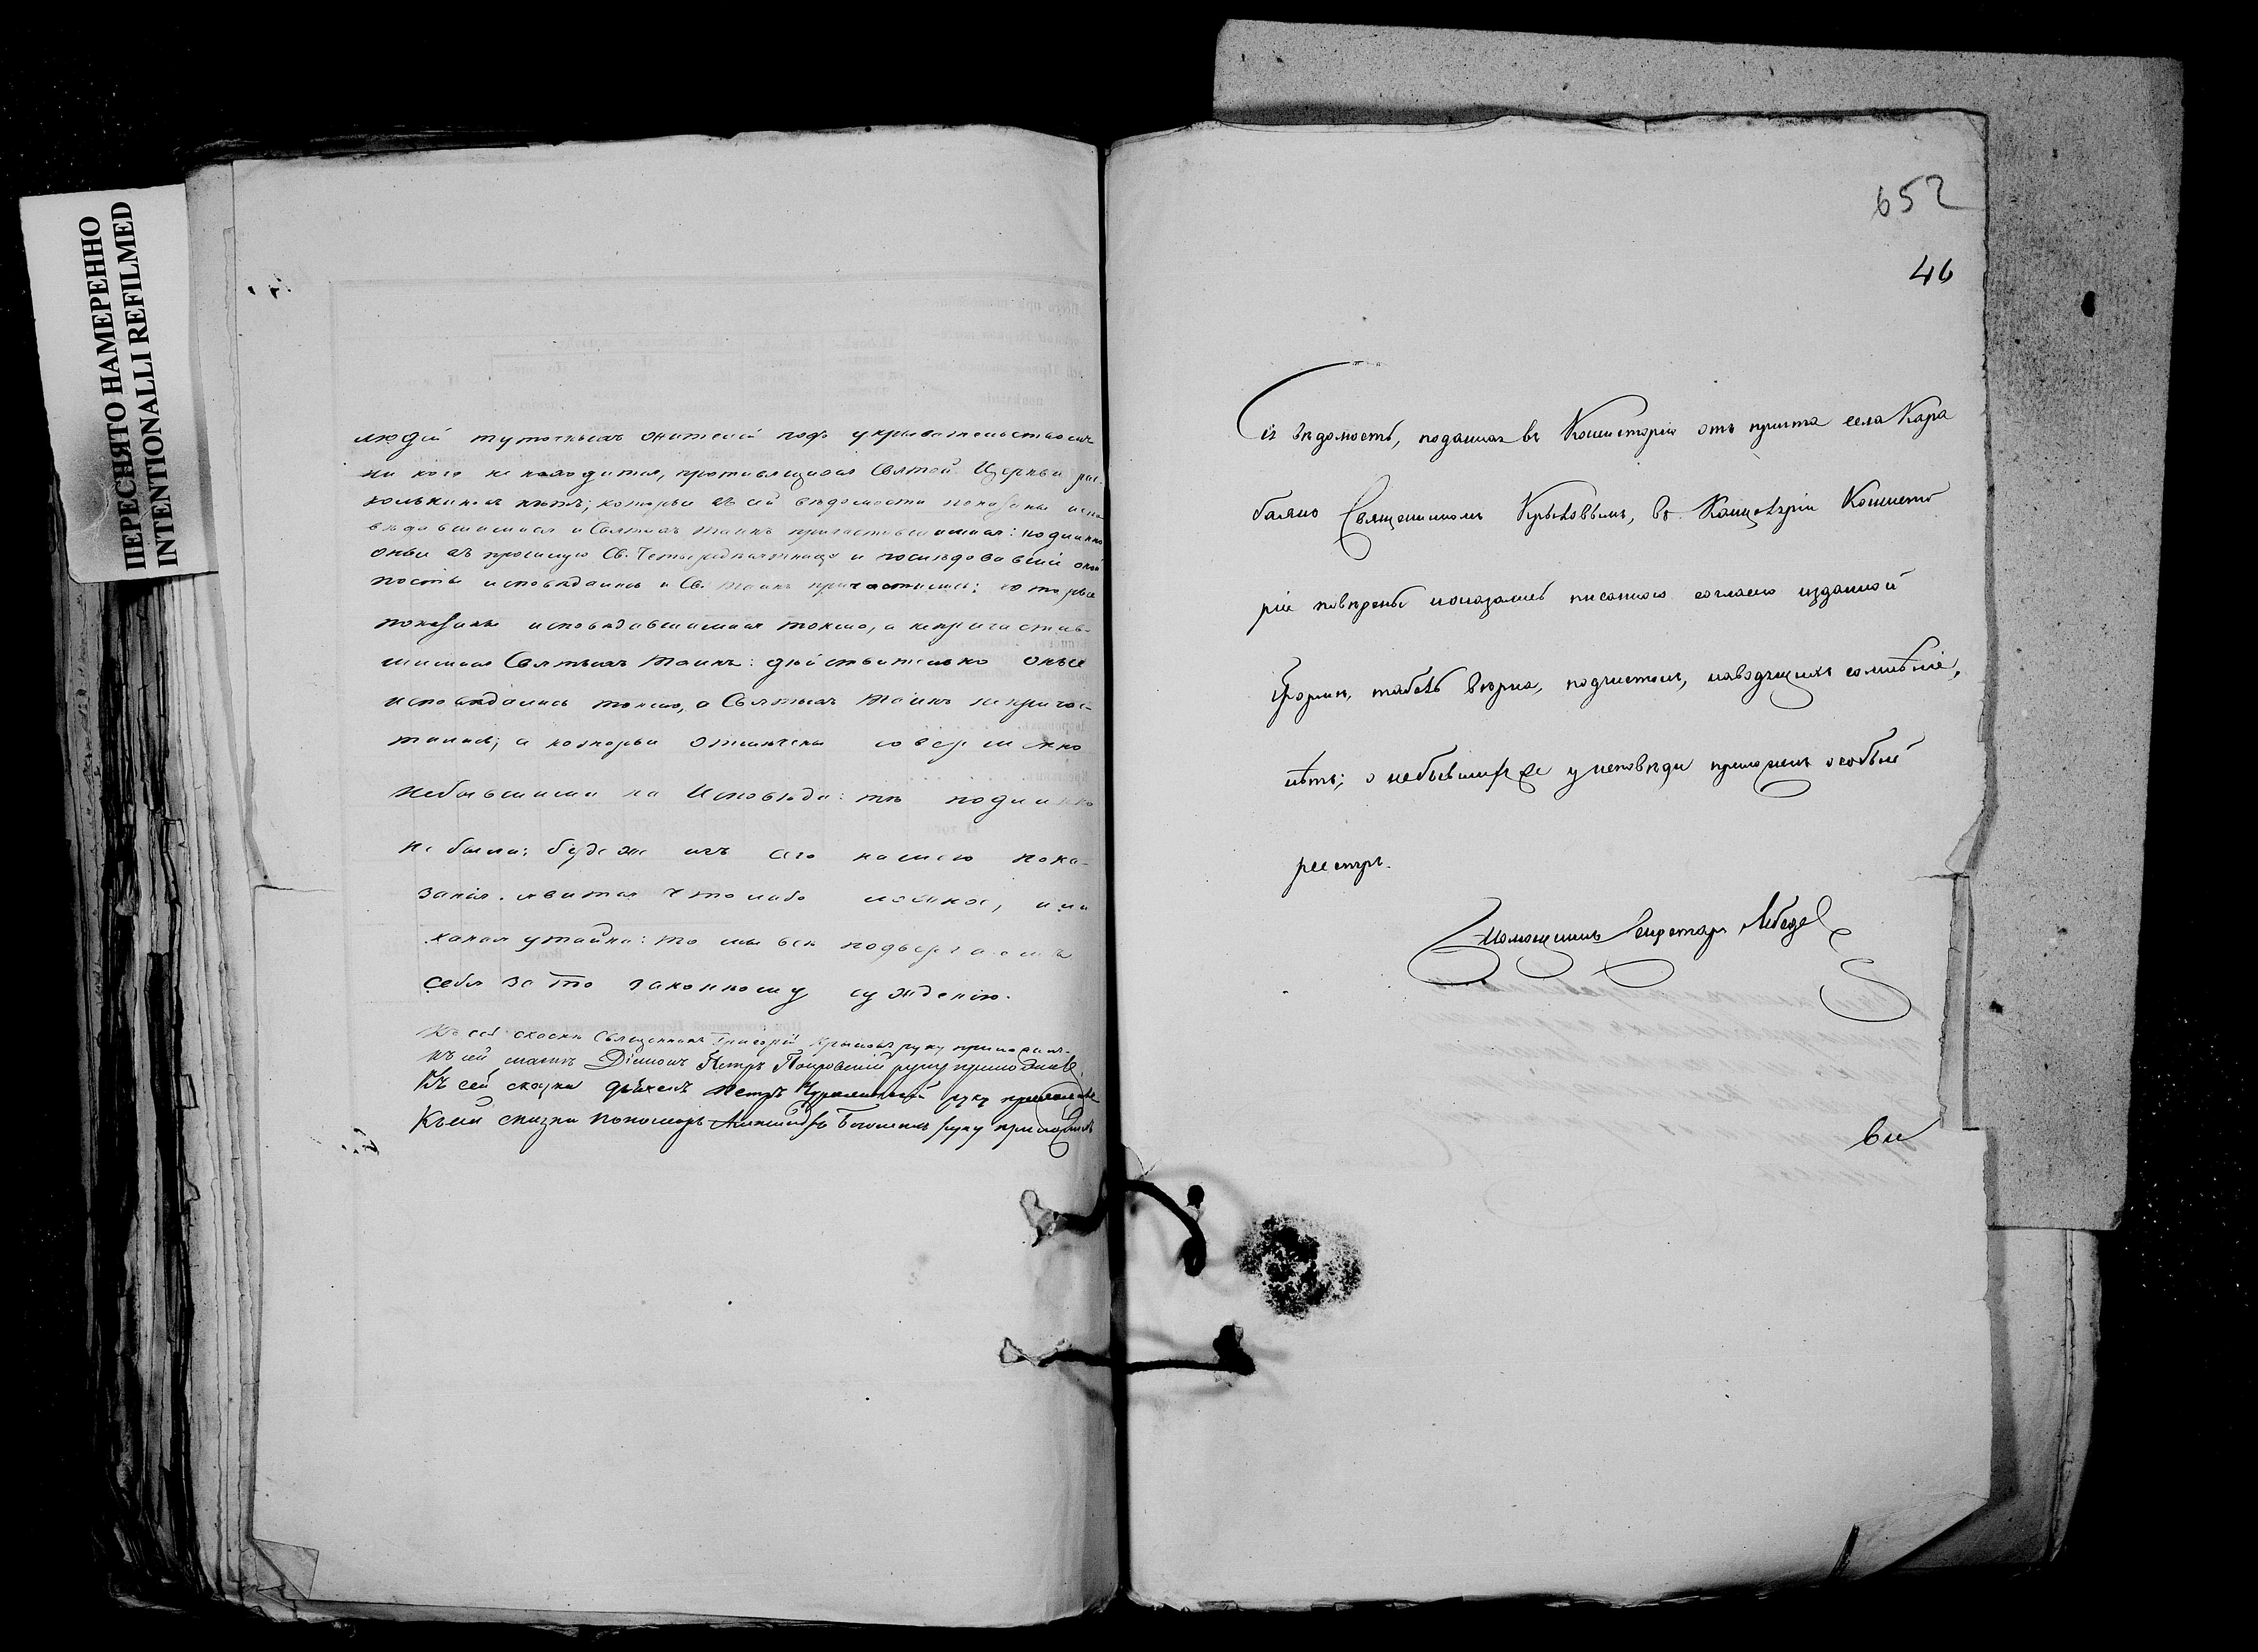 ПЕРЕСНЯТО НАМЕРЕННО
INTENTIONALLI REFILMED
людей тутошныхъ жителей подъ укрывательствомъ
ни кого не находится, противящихся Святой Церкви рас-
кольниковъ нѣтъ; которыи въ сей вѣдомости показаны испо
вѣдавшимися и Святыхъ Таинъ причастившимися: подлинно
оныи въ прошлую Св. Четыредесятницу и послѣдовавшій
посты исповѣдались и Св. Таинъ причастились; которые
показаны исповѣдавшимися токмо, а непричастив-
шимися Святыхъ Таинъ: дѣйствительно оные
исповѣдались токмо, а Святыхъ Таинъ непричас-
тились; а которыи отмѣчены совершенно
небывшими на Исповѣди: тѣ подлинно
не были; буде же изъ сего нашего пока-
занія явится что либо ложное, или
какая утайка: то мы всѣ подвергаемъ
себя за то законному сужденію.
Къ сей сказкѣ Священникъ Григорій Крыловъ руку приложилъ.
Къ сей сказкѣ Діаконъ Петръ Покровскій руку приложилъ
Къ сей сказки дьячекъ Петръ руку приложилъ
Къ сей сказки пономарь руку приложилъ
652
46
Сія вѣдомость, поданная въ Консисторію отъ причта села Кара
баяно Священникомъ Крыловымъ, въ Канцеляріи Консисто
ріи повѣрены показались писанною согласно изданной
Формы, табель вѣрна, подчистокъ, наводящихъ сомнѣніе,
нѣтъ; о небывшихъ у исповѣди приложенъ особый
реестръ.
Помощникъ Секретаря Лебедев